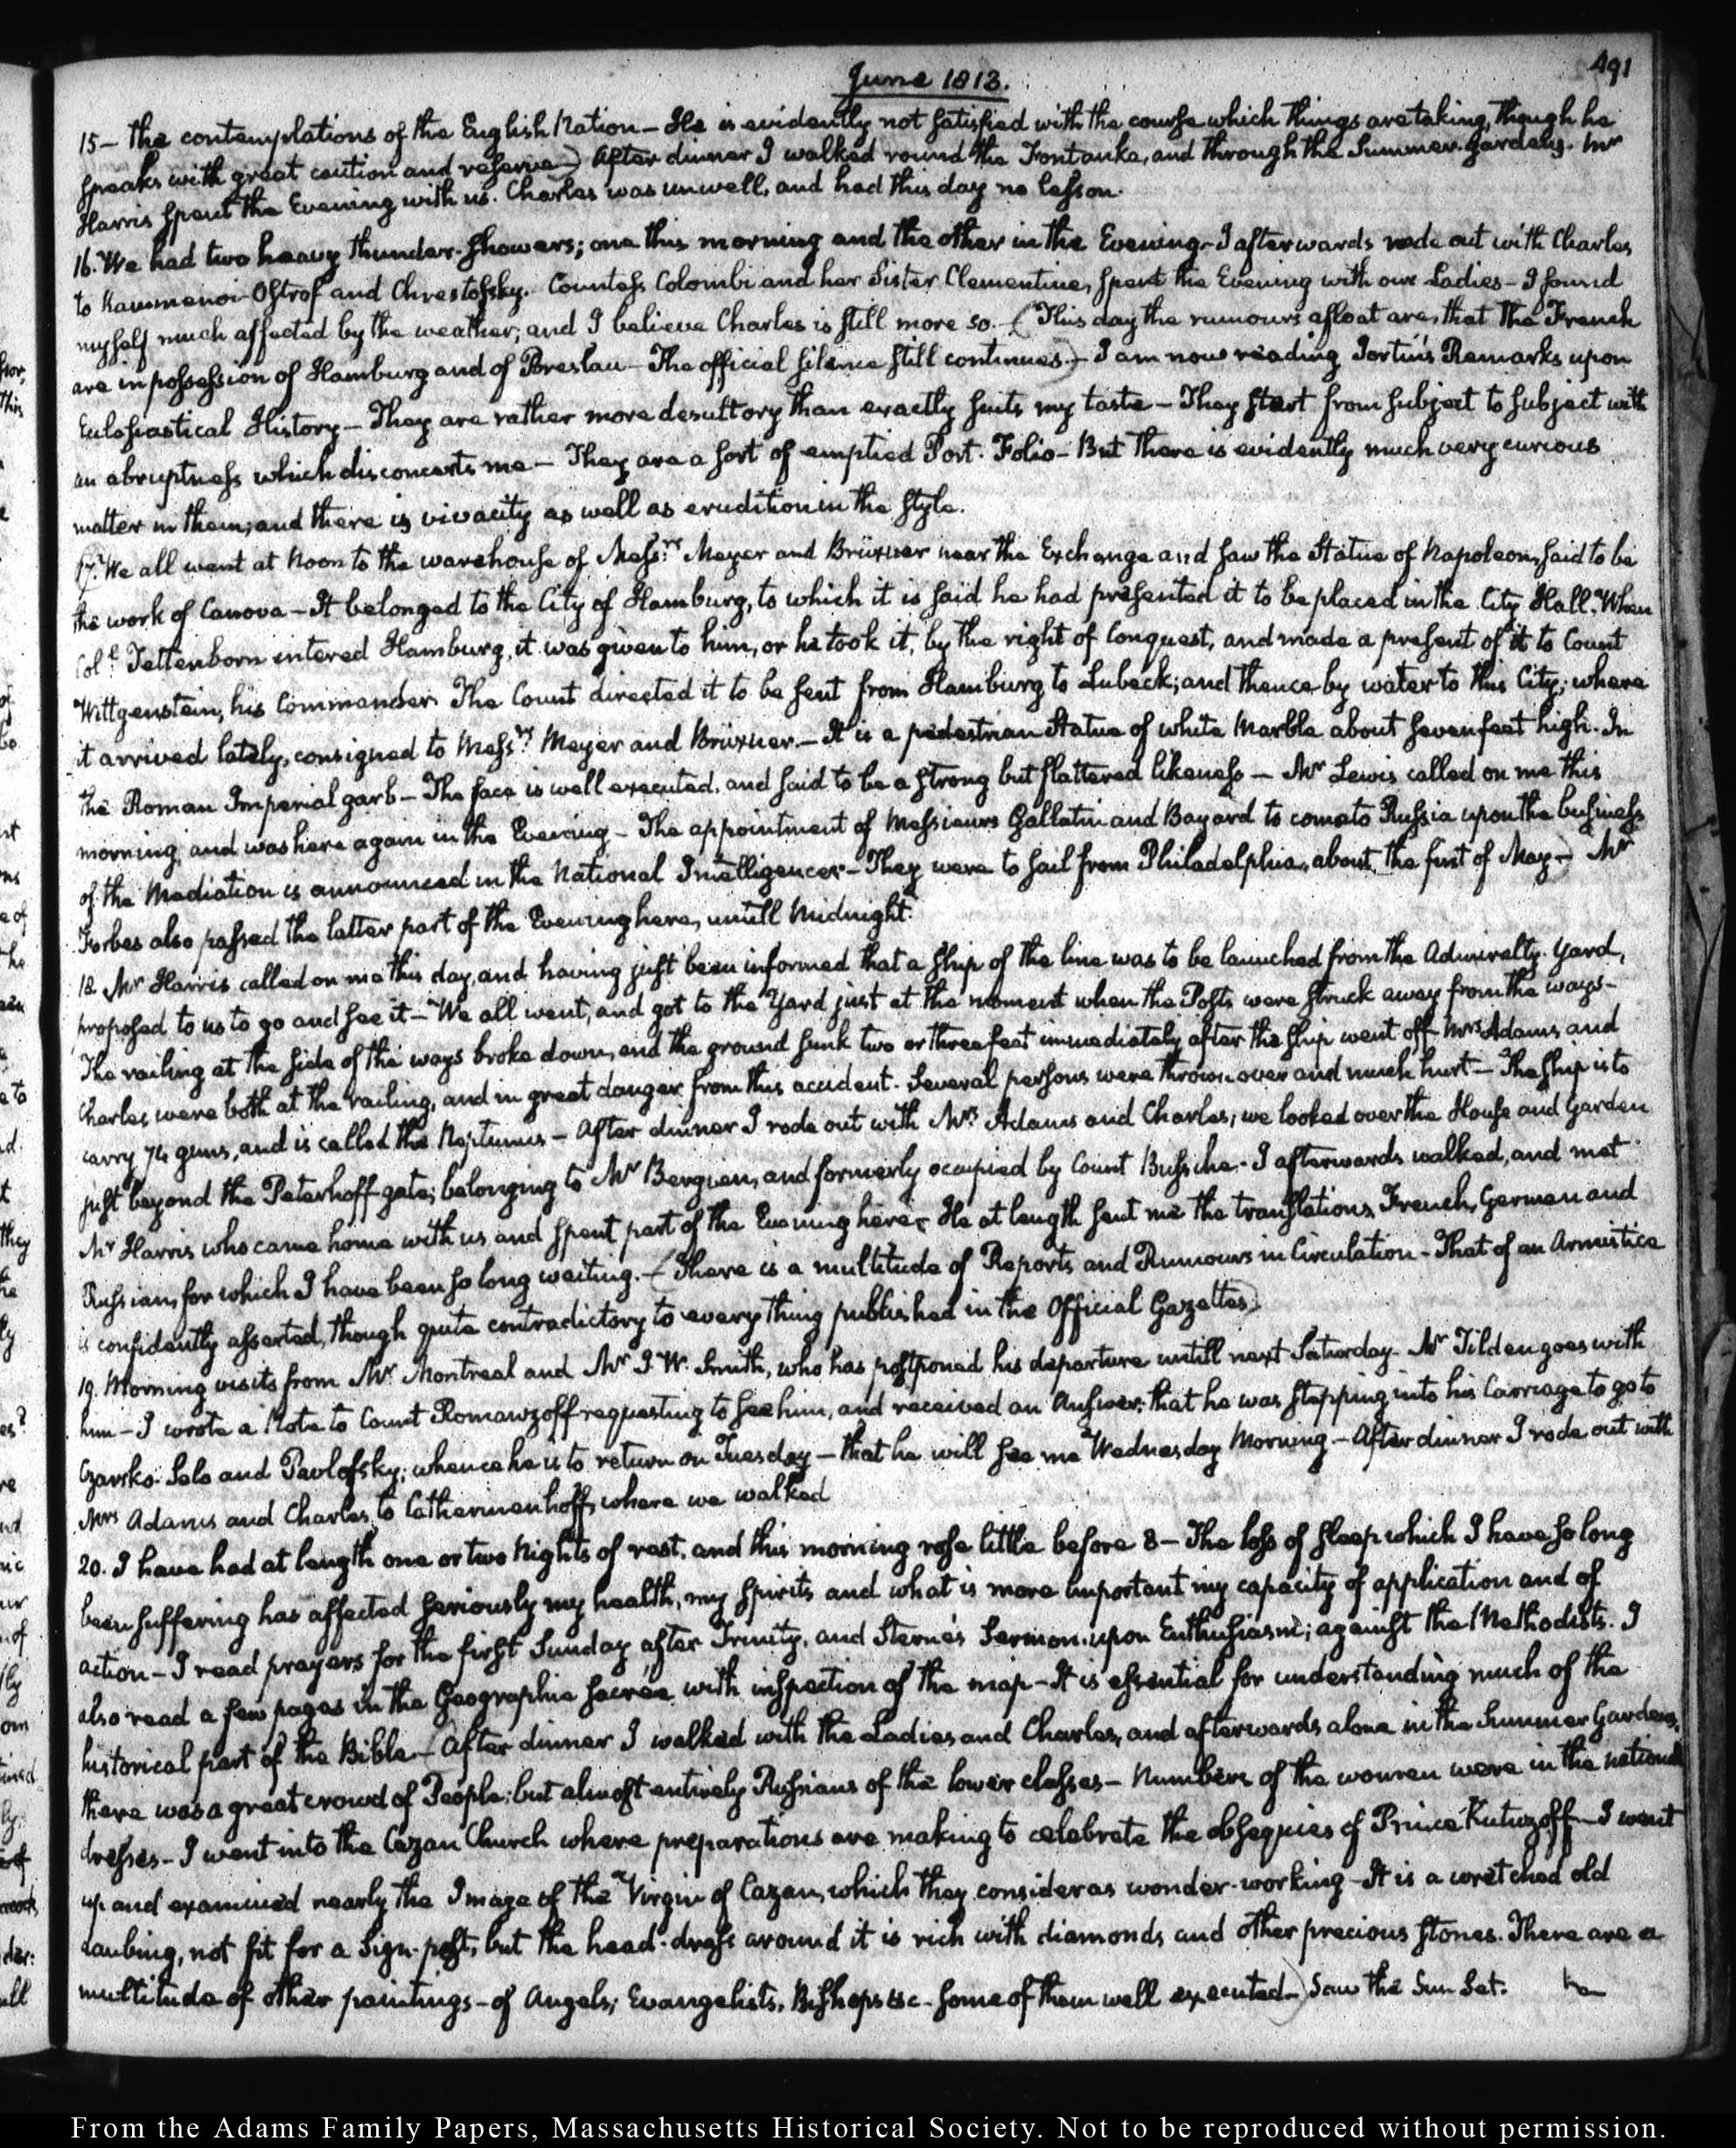 491
June 1813.
15 — the contemplations of the English Nation — He is evidently not satisfied with the course which things are taking, though he
speaks with great caution and reserve —) After dinner I walked round the Fontanka, and through the Summer-Gardens. Mr
Harris spent the Evening with us. Charles was unwell, and had this day no lesson.
16. We had two heavy thunder-showers; one this morning and the other in the Evening — I afterwards rode out with Charles,
to Kammenoi-Ostrof and Chrestofsky. Countess Colombi and her Sister Clementine, spent the Evening with our Ladies — I found
myself much affected by the weather; and I believe Charles is still more so. — (This day the rumours afloat are, that the French
are in possession of Hamburg and of Breslau — The official silence still continues.) — I am now reading Jortin's Remarks upon
Eclesiastical History — They are rather more desultory than exactly suits my taste — They start from subject to subject with
an abruptness which disconcerts me — They are a sort of emptied Port-Folio — But there is evidently much very curious
matter in them; and there is vivacity as well as erudition in the style.
17. We all went at Noon to the warehouse of Messrs Meyer and Brüxner near the Exchange and saw the Statue of Napoleon, said to be
the work of Canova — It belonged to the City of Hamburg, to which it is said he had presented it to be placed in the City Hall. When
Coll Tettenborn entered Hamburg, it was given to him, or he took it, by the right of Conquest, and made a present of it to Count
Wittgenstein, his Commander. The Count directed it to be sent from Hamburg to Lubeck; and thence by water to this City; where
it arrived lately, consigned to Messrs Meyer and Brüxner. — It is a pedestrian Statue of white Marble about seven feet high. In
the Roman Imperial garb — The face is well executed, and said to be a strong but flattered likeness — Mr Lewis called on me this
morning, and was here again in the Evening — The appointment of Messieurs Gallatin and Bayard to come to Russia upon the business
of the Mediation is announced in the National Intelligencer — They were to sail from Philadelphia, about the first of May —) Mr
Forbes also passed the latter part of the Evening here, untill Midnight.
18 Mr Harris called on me this day, and having just been informed that a ship of the line was to be launched from the Admiralty-Yard,
proposed to us to go and see it — We all went, and got to the Yard just at the moment when the Posts were struck away from the ways —
The railing at the side of the ways broke down, and the ground sunk two or three feet immediately after the ship went off. Mrs Adams and
Charles were both at the railing, and in great danger from this accident. Several persons were thrown over and much hurt — The ship is to
carry 74 guns, and is called the Neptunus — After dinner I rode out with Mrs Adams and Charles; we looked over the House and Garden
just beyond the Peterhoff gate; belonging to Mr Bergien, and formerly occupied by Count Bussche. I afterwards walked, and met
Mr Harris who came home with us, and spent part of the Evening here. He at length sent me the translations, French, German and
Russian, for which I have been so long waiting. — (There is a multitude of Reports and Rumours in Circulation — That of an Armistice
is confidently asserted, though quite contradictory to every thing published in the Official Gazettes)
19. Morning visits from Mr Montreal and Mr J. W. Smith, who has postponed his departure untill next Saturday. Mr Tilden goes with
him — I wrote a Note to Count Romanzoff requesting to see him, and received an Answer; that he was stepping into his Carriage to go to
Czarsko-Selo and Pavlofsky; whence he is to return on Tuesday — that he will see me Wednesday Morning — After dinner I rode out with
Mrs Adams and Charles, to Catherinenhoff, where we walked
20. I have had at length one or two Nights of rest, and this morning rose little before 8 — The loss of sleep which I have so long
been suffering has affected seriously my health, my spirits and what is more important my capacity of application and of
action — I read prayers for the first Sunday after Trinity, and Sterne's Sermon upon Enthusiasm; against the Methodists. I
also read a few pages in the Geographie sacrée, with inspection of the map — It is essential for understanding much of the
historical part of the Bible — (After dinner I walked with the Ladies and Charles, and afterwards alone in the Summer Gardens,
there was a great crowd of People; but almost entirely Russians of the lower classes — Numbers of the women were in the national
dresses — I went into the Cazan Church where preparations are making to celebrate the obsequies of Prince Kutuzoff — I went
up and examined nearly the Image of the Virgin of Cazan, which they consider as wonder-working — It is a wretched old
daubing, not fit for a sign-post, but the head-dress around it is rich with diamonds and other precious stones. There are a
multitude of other paintings — of Angels, Evangelists, Bishops &c — some of them well executed —) Saw the Sun Set.
From the Adams Family Papers, Massachusetts Historical Society. Not to be reproduced without permission.